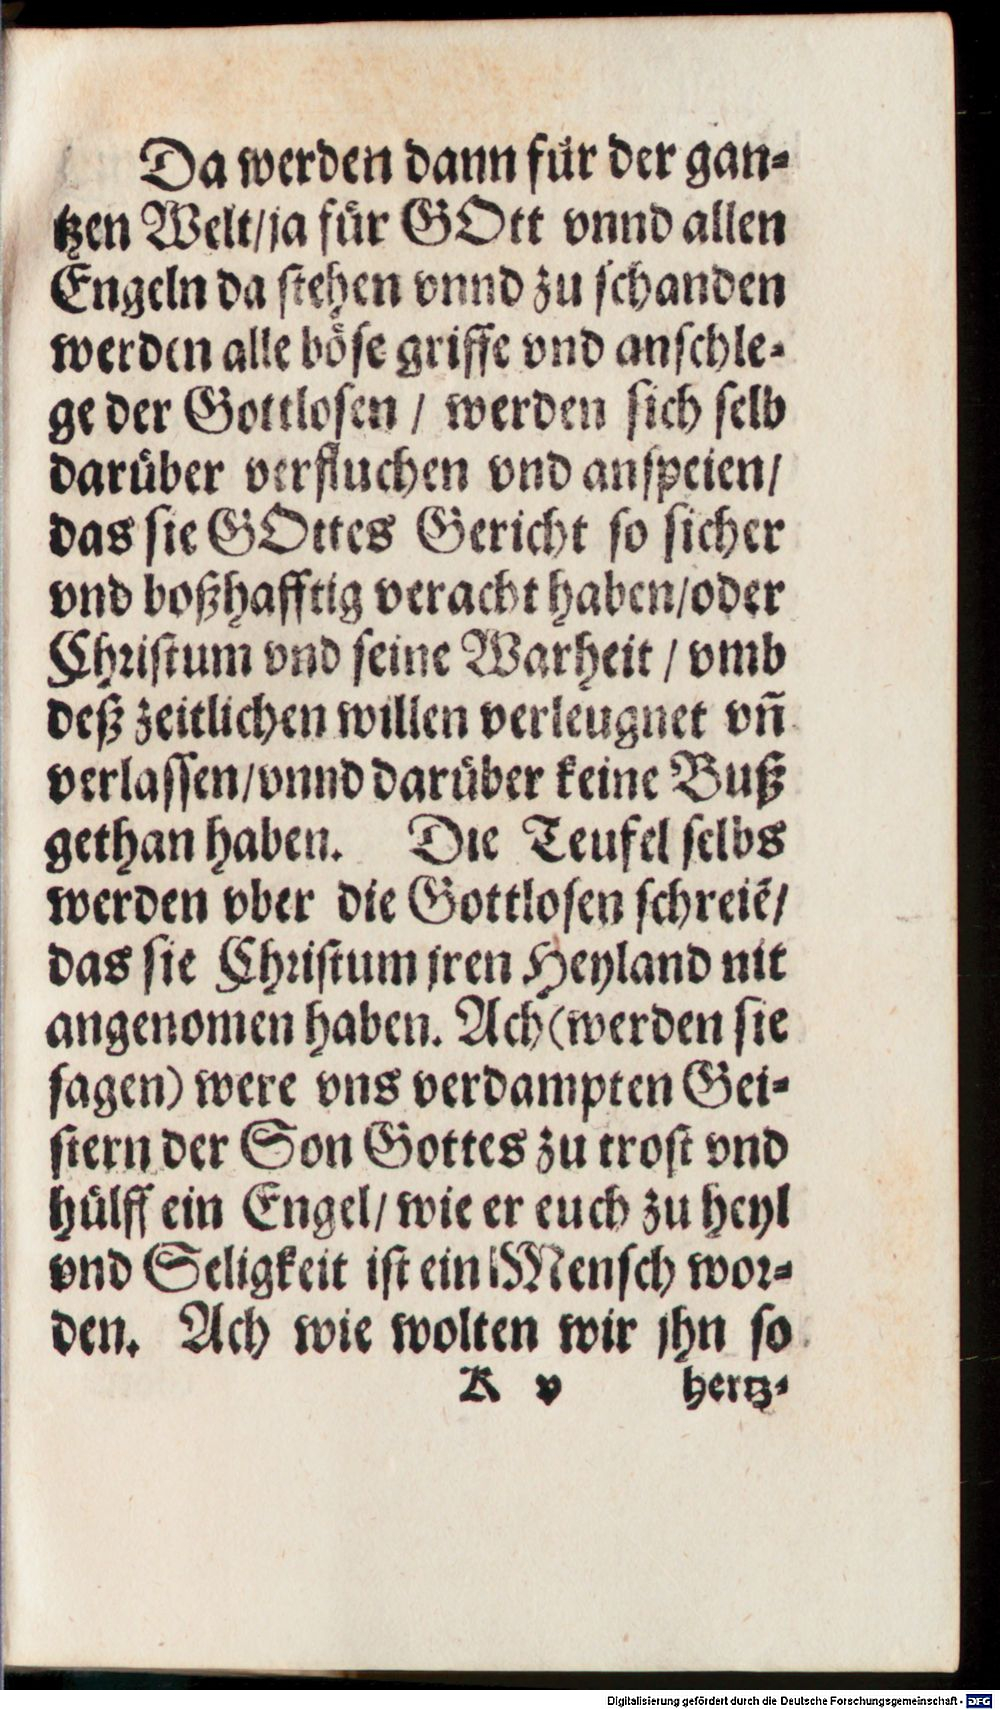 Da werden dann für der gan-
tzen Welt/ja für GOtt vnnd allen
Engeln da stehen vnnd zu schanden
werden alle böse griffe vnd anschle-
ge der Gottlosen / werden sich selb
darüber verfluchen vnd anspeien/
das sie GOttes Gericht so sicher
vnd boßhafftig veracht haben/oder
Christum vnd seine Warheit / vmb
deß zeitlichen willen verleugnet vñ
verlassen/vnnd darüber keine Buß
gethan haben. Die Teufel selbs
werden vber die Gottlosen schreiē/
das sie Christum jren Heyland nit
angenomen haben. Ach (werden sie
sagen) were vns verdampten Gei-
stern der Son Gottes zu trost vnd
hülff ein Engel/ wie er euch zu heyl
vnd Seligkeit ist ein Mensch wor-
den. Ach wie wolten wir jhn so
K v hertz-
Digitalisierung gefördert durch die Deutsche Forschungsgemeinschaft - DFG